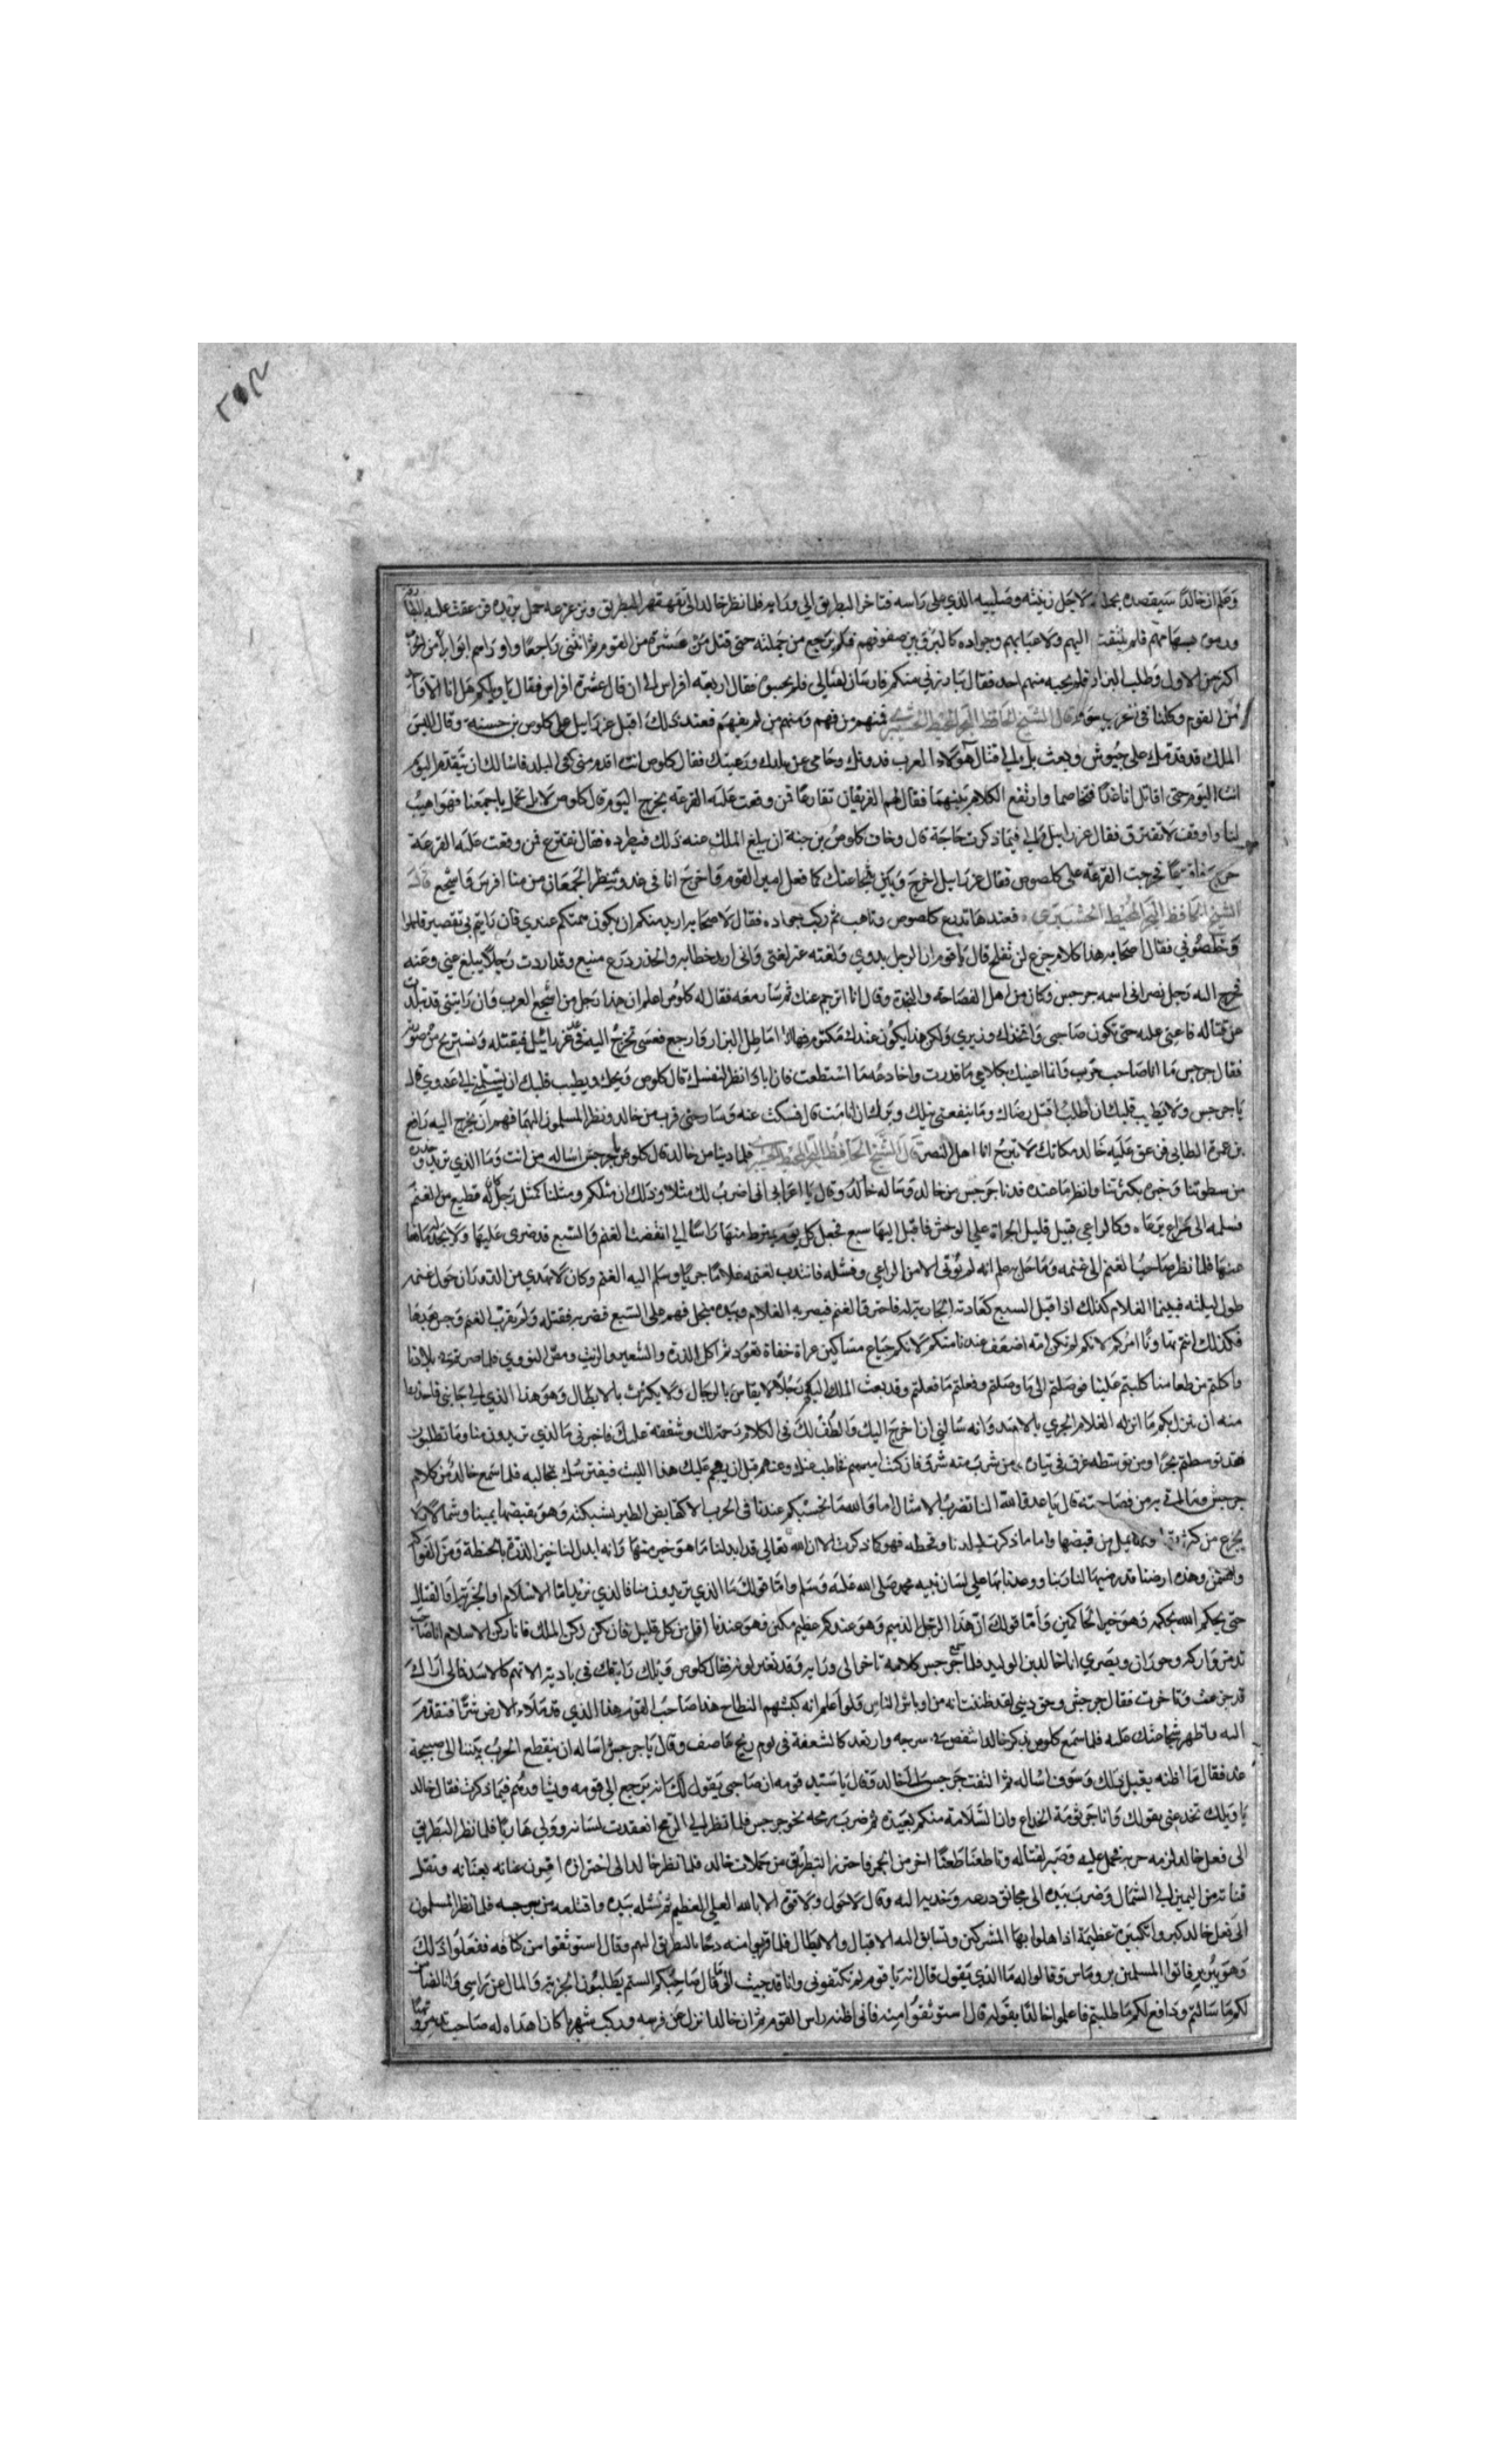 وعلم ان خالدا سيقصده بحملته لاجل زينته وصليبه الذي على راسه فتاخر البطريق الي ورايه فلما نظر خالد الى تقهقر البطريق ومن عزمه حمل يريده فن عقت عليه البطار
ورموه بسهامهم فلم يلتفت اليهم ولا عبا بهم وجواده كالبرق بين صفوفهم فلم يرجع من حملته حتى قتل من عشرة من القوم ثم انثنى راجعا
اكثر من الاول وطلب البراز فلم يجبه منهم احد فقال يبارزني منكم فارسان لقتالي فلم يجيبوه فقال اربعة افراس الي ان قال عشرة افراس فقال يا ويلكم هل انا الا
من القوم وكلنا فى نحر قال الشيخ الحافظ البحر المحيط فمنهم من فهم ومنهم من لم يفهم فعند ذلك اقبل عزرابيل على كلوص بن حسنه وقال اليس
الملك قد قدمك على جيوش وبعث بك الي قتال هولاء العرب فدونك وحامى عن بلدك ورعيتك فقال كلوص انت اقدم منى فى البلد فاسالك ان تتقدم اليوم
انت اليوم حتى اقاتل انا غدا فتخاصما وارتفع الكلام بينهما فقال لهم الفريقان تقارعا فن وقعت عليه القرعة يخرج اليوم قال كلوص لا بل نحمل باجمعنا فهو اهيب
لنا واوقف لا نفترق فقال عزرابيل الي فيما ذكرت حاجة قال وخاف كلوص بن حنه ان يبلغ الملك عنه ذلك فيطرده فقال نقترع فن وقعت عليه القرعة
خرج فاقترعا فخرجت القرعة على كلصوص فقال عزرابيل اخرج وبين شجاعتك كما فعل امير القوم فاخرج انا فى غد وينظر الجمعان من منا افرس واشجع قال
الشيخ الحافظ البحر المحيط فعندها تدرع كلصوص وتاهب ثم ركب جواده فقال لاصحابه اريد منكم ان يكون همتكم عندي فان رايتم بي تقصير فاحملوا
وخلصوني فقال اصحابه هذا كلام جزع لن تفلح قال يا قوم ان الرجل بدوي ولغته غير لغتى وانى اريد خطابه والحذر درع منيع وقد اردت رجلا يبلغ عني وعنه
فخرج اليه رجل نصرانى اسمه جرجس وكان من اهل الفصاحة والنجدة وقال انا اترجم عنك ثم سار معه فقال له كلوص اعلم ان هذا رجل من اشجع العرب فان رايتنى قد تبلدت
عن قتاله فاعينى عليه حتى تكون صاحبى واتخذك وزيري ولكن هذا يكون عندك مكتوم اماطل البراز وارجع فعسى نخرج اليه فى غد عزرائيل فيقتله ونستريح من
فقال جرجس ما انا صاحب حرب وانا اعينك بكلامي ما قدرت واخادعه ما استطعت فان اباه انظر لنفسك قال كلوص ويحك ويطيب قلبك ان تسلمني الي عدوي قال
يا جرجس ولا يطيب قلبك ان اطلب اقتل رضاك وما ينفعنى نيلك وبرك ان انا مت قال فسكت عنه وسار حتى قرب من خالد ونظر المسلمون اليهما فهم ان يخرج اليه رافع
بن عمرة الطائى فزعق عليه خالد مكانك لا تبرح انا اهل النصرة قال الشيخ الحافظ البحر المحيط فلما دنيا من خالد قال كلوص لجرجس اساله من انت وما الذي تريد وحذره
من سطوتنا وخبره بكثرتنا وانظر ما عنده فدنا جرجس من خالد وساله خالد وقال يا اعرابى انى اضرب لك مثلا وذلك ان مثلكم ومثلنا كمثل رجل له قطيع من الغنم
فسلمه الى راع يرعاه وكان الراعي قليل الجراة علي الوحش فاقبل اليها سبع فجعل كل يوم يلتقط منها راسا الي انقضت الغنم والسبع قد ضرى عليها ولا يجد مانعا
عنها فلما نظر صاحب الغنم الى غنمه وما حل علم انه لم يوتى الا من الراعي وفشله فانتدب لغنمه غلاما جريا وسلم اليه الغنم وكان حول غنمه
طول ليلته فبينما الغلام كذلك اذا اقبل السبع كعادته الجارية له فاخترق الغنم فبصر به الغلام وبيده منجل فهم على السبع فضربه فقتله ولم يقرب الغنم وحش بعدها
فكذلك انتم تهاونا امركم لانكم لم تكن امة اضعف عندنا منكم لانكم جياع مساكين عراة حفاة تعودتم اكل الذرة والشعير والزيت ومص النووي فلما صرتم الى بلادنا
واكلتم من طعامنا كلبتم علينا فوصلتم الى ما وصلتم وفعلتم ما فعلتم وقد بعث الملك اليكم رجلا لا يقاس بالرجال ولا يكترث بالابطال وهو هذا الذي الي جانبى فاحذروا
منه ان ينزل بكم ما انزله الغلام الجري بالاسد وانه سالني ان اخرج اليك والطف لك فى الكلام رحمة لك وشفقة عليك فاخبرنى ما الذي تريدون منا وما تطلبون
فقد توسطتم بحرا ومن توسطه غرق فى تياره ومن شرب منه شرق فان كنت اميرهم فخاطب عنك وعنهم قبل ان يهجم عليك هذا الليث فيفترسك بمخالبه فلما سمع خالد من كلام
جرجس من فصاحته قال يا عدو الله النا تضرب الامثال اما والله ما نحسبكم عندنا فى الحرب الا كقابض الطير بشبكته وهو يقبضها يمينا وشمالا ولا
يجزع من كثرتها من قبضها واما ما ذكرت لبلدنا وقحطه فهو كما ذكرت الا ان الله تعالى قد ابدلنا ما هو خير منها وانه ابدل لنا خبز الذرة بالحنطة ومن الفواكه
والسمن وهذه ارضنا قد رضيها لنا ربنا ووعدنا بها على لسان نبيه محمد صلى الله عليه وسلم واما قولك ما الذي تريدون منا فالذي نريد اما الاسلام او الجزية او القتال
حتى يحكم الله بحكمه وهو خير الحاكمين واما قولك ان هذا الرجل الذميم وهو عندكم عظيم مكين فهو عندنا اقل من كل قليل فان يكن ركن الملك فانا ركن الاسلام انا صاحب
تدمر واركه وحوران وبصرى انا خالد بن الوليد فلما سمع جرجس كلامه تاخر الى ورايه وقد تغير لونه فقال كلوص ويلك رايتك فى باديه الامر كالاسد فما لى اراك
قد جزعت وتاخرت فقال جرجس وحق ديني لقد ظننت انه من اوباش الناس ولو اعلم انه كبشهم النطاح هذا صاحب القوم هذا الذي قد ملاء الارض شرا فتقدم
اليه واظهر شجاعتك عليه فلما سمع كلوص بذكر خالدا انتفض على سرجه وارتعد كالسعفة فى يوم ريح عاصف وقال يا جرجس اساله ان ينقطع الحرب بيننا الى صبيحة
غد فقال ما اظنه يقبل ذلك وسوف اساله ثم التفت جرجس الى خالد وقال يا سيد قومه ان صاحبى يقول لك انه يرجع الي قومه ويشاورهم فيما ذكرت فقال خالد
يا ويلك تخدعنى بقولك وانا جرثومة الخداع وان السلامة منكم بعيدة ثم ضرب برمحه نحو جرجس فلما نظر الي الرمح انعقدت لسانه وولي هاربا فلما نظر البطريق
الى فعل خالد لزمه حرب فحمل عليه وقصر لقتاله وتاطعنا طعنا احر من الجمر فاحترز البطريق من حملات خالد فلما نظر خالد الى احترازه اقرن عنانه بعنانه ونقل
قناته من اليمين الي الشمال وضرب بيده الى مخانق درعه وجذبه اليه وقال لا حول ولا قوة الا بالله العلي العظيم ثم نشله بيده واقتلعه من سرجه فلما نظر المسلمون
الى فعل خالد كبروا تكبيرة عظيمة اذاهلوا بها المشركين وتسابق اليه الاقيال والابطال فلما قربوا منه دحا بالبطريق اليهم وقال استوثقوا من كتافه ففعلوا ذلك
وهو يبربر فاتوا المسلمين بروماس وقالوا له ما الذي يقول قال انه يا قوم لم تكتفونى وانا قد جيت الى ما قال صاحبكم الستم تطلبون الجزية والمال عن راسي وانا الضامن
لكم ما سالتم ودافع لكم ما طلبتم فاعلموا خالدا بقوله قال استوثقوا منه فانى اظنه راس القوم ثم ان خالدا نزل عن فرسه وركب شهريا كان اهداه له صاحب تدمر